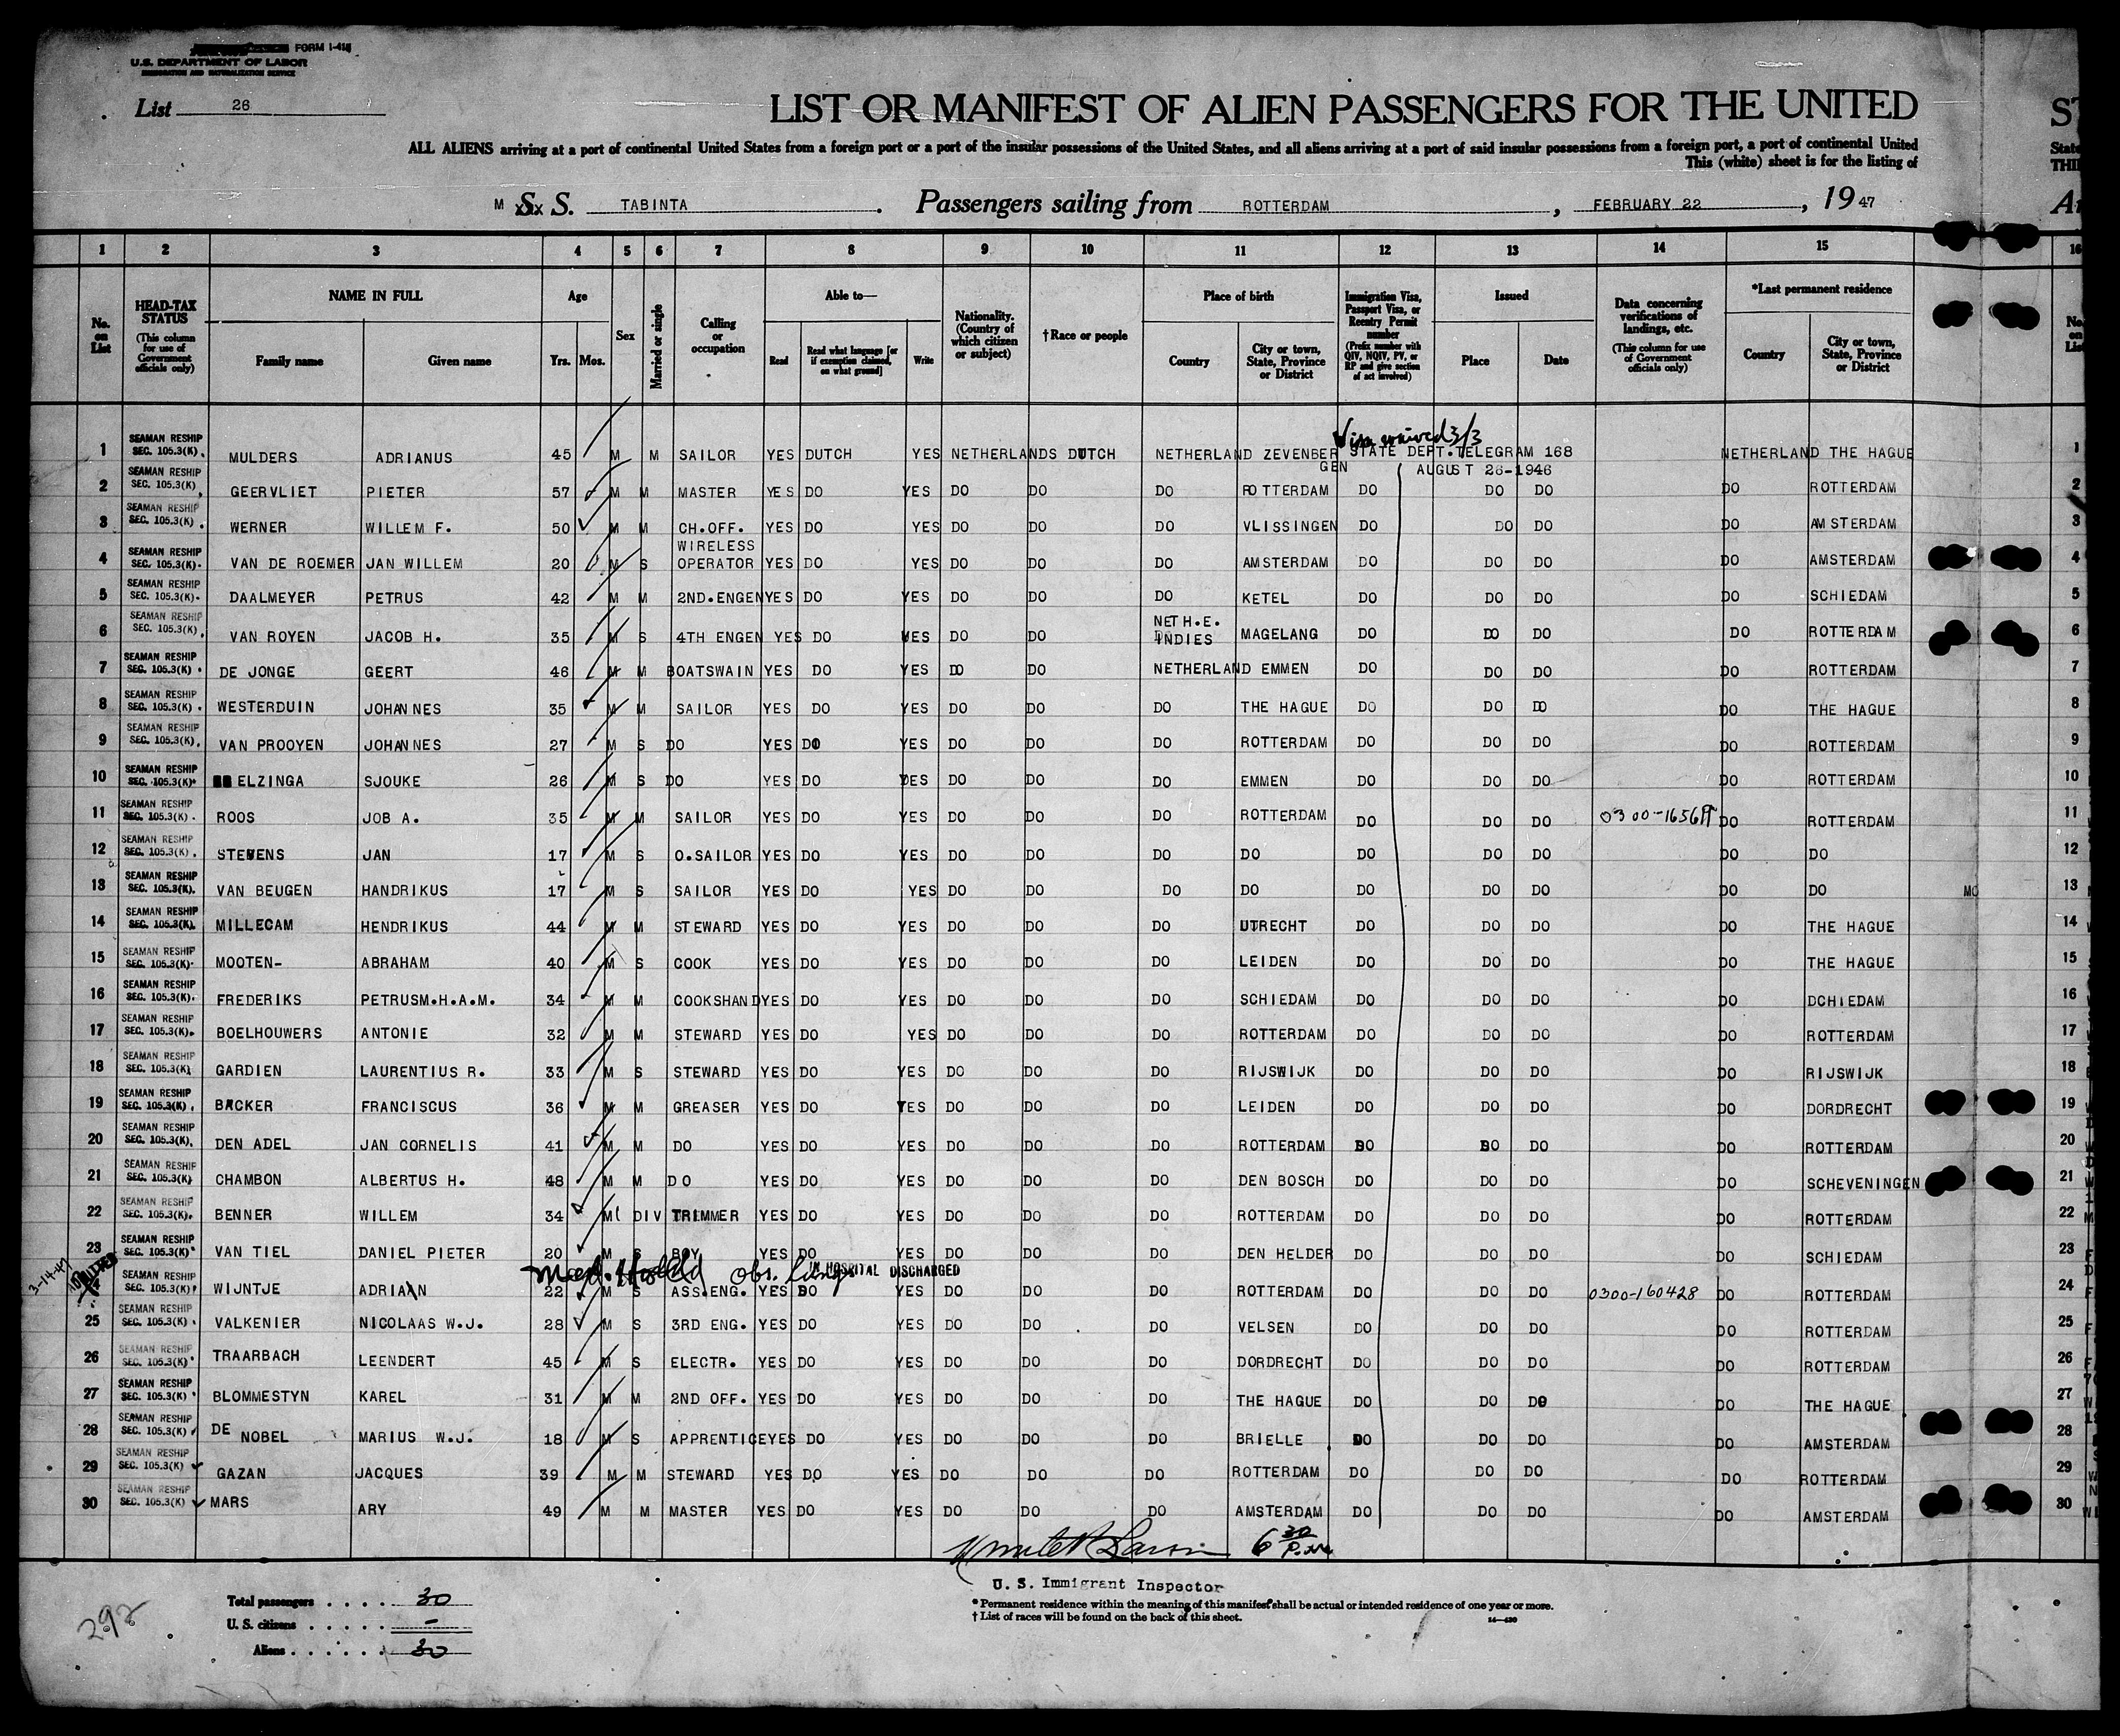 FORM I-418
U.S. DEPARTMENT OF LABOR
IMMIGRATION AND NATURALIZATION SERVICE
List 26
LIST OR MANIFEST OF ALIEN PASSENGERS FOR THE UNITED ST
ALL ALIENS arriving at a port of continental United States from a foreign port or a port of the insular possessions of the United States, and all aliens arriving at a port of said insular possessions from a foreign port, a port of continental United State
This (white) sheet is for the listing of THI
M S. S. TABINTA. Passengers sailing from ROTTERDAM, FEBRUARY 22, 19 47
1 2 3 4 5 6 7 8 9 10 11 12 13 14 15 16
No. on List
HEAD-TAX STATUS (This column for use of Government officials only)
NAME IN FULL Family name Given name
Age Yrs. Mos.
Sex
Married or single
Calling or occupation
Able to— Read Read what language [or if exemption claimed, on what ground] Write
Nationality. (Country of which citizen or subject)
†Race or people
Place of birth Country City or town, State, Province or District
Immigration Visa, Passport Visa, or Reentry Permit number (Prefix number with QIV, NQIV, PV, or RP and give section of act involved)
Issued Place Date
Data concerning verifications of landings, etc. (This column for use of Government officials only)
*Last permanent residence Country City or town, State, Province or District
Visa waived 3/3
1 SEAMAN RESHIP SEC. 105.3(K). MULDERS ADRIANUS 45 M M SAILOR YES DUTCH YES NETHERLANDS DUTCH NETHERLAND ZEVENBERGEN STATE DEPT. TELEGRAM 168 AUGUST 26-1946 NETHERLAND THE HAGUE 1
2 SEAMAN RESHIP SEC. 105.3(K). GEERVLIET PIETER 57 M M MASTER YES DO YES DO DO DO ROTTERDAM DO DO DO DO ROTTERDAM 2
3 SEAMAN RESHIP SEC. 105.3(K). WERNER WILLEM F. 50 M M CH.OFF. YES DO YES DO DO DO VLISSINGEN DO DO DO DO AMSTERDAM 3
4 SEAMAN RESHIP SEC. 105.3(K). VAN DE ROEMER JAN WILLEM 20 M S WIRELESS OPERATOR YES DO YES DO DO DO AMSTERDAM DO DO DO DO AMSTERDAM 4
5 SEAMAN RESHIP SEC. 105.3(K). DAALMEYER PETRUS 42 M M 2ND.ENGEN YES DO YES DO DO DO KETEL DO DO DO DO SCHIEDAM 5
6 SEAMAN RESHIP SEC. 105.3(K). VAN ROYEN JACOB H. 35 M S 4TH ENGEN YES DO YES DO DO NETH.E. INDIES MAGELANG DO DO DO DO ROTTERDAM 6
7 SEAMAN RESHIP SEC. 105.3(K). DE JONGE GEERT 46 M M BOATSWAIN YES DO YES DO DO NETHERLAND EMMEN DO DO DO DO ROTTERDAM 7
8 SEAMAN RESHIP SEC. 105.3(K). WESTERDUIN JOHANNES 35 M M SAILOR YES DO YES DO DO DO THE HAGUE DO DO DO DO THE HAGUE 8
9 SEAMAN RESHIP SEC. 105.3(K). VAN PROOYEN JOHANNES 27 M S DO YES DO YES DO DO DO ROTTERDAM DO DO DO DO ROTTERDAM 9
10 SEAMAN RESHIP SEC. 105.3(K). ELZINGA SJOUKE 26 M S DO YES DO YES DO DO DO EMMEN DO DO DO DO ROTTERDAM 10
11 SEAMAN RESHIP SEC. 105.3(K). ROOS JOB A. 35 M M SAILOR YES DO YES DO DO DO ROTTERDAM DO DO DO DO ROTTERDAM 11
12 SEAMAN RESHIP SEC. 105.3(K). STEVENS JAN 17 M S O.SAILOR YES DO YES DO DO DO DO DO DO DO DO DO 12
13 SEAMAN RESHIP SEC. 105.3(K). VAN BEUGEN HANDRIKUS 17 M S SAILOR YES DO YES DO DO DO DO DO DO DO DO DO MO 13
14 SEAMAN RESHIP SEC. 105.3(K). MILLECAM HENDRIKUS 44 M M STEWARD YES DO YES DO DO DO UTRECHT DO DO DO DO THE HAGUE 14
15 SEAMAN RESHIP SEC. 105.3(K). MOOTEN- ABRAHAM 40 M S COOK YES DO YES DO DO DO LEIDEN DO DO DO DO THE HAGUE 15
16 SEAMAN RESHIP SEC. 105.3(K). FREDERIKS PETRUSM.H.A.M. 34 M M COOKSHAND YES DO YES DO DO DO SCHIEDAM DO DO DO DO DCHIEDAM 16
17 SEAMAN RESHIP SEC. 105.3(K). BOELHOUWERS ANTONIE 32 M M STEWARD YES DO YES DO DO DO ROTTERDAM DO DO DO DO ROTTERDAM 17
18 SEAMAN RESHIP SEC. 105.3(K) GARDIEN LAURENTIUS R. 33 M S STEWARD YES DO YES DO DO DO RIJSWIJK DO DO DO DO RIJSWIJK 18
19 SEAMAN RESHIP SEC. 105.3(K). BACKER FRANCISCUS 36 M M GREASER YES DO YES DO DO DO LEIDEN DO DO DO DO DORDRECHT 19
20 SEAMAN RESHIP SEC. 105.3(K). DEN ADEL JAN CORNELIS 41 M M DO YES DO YES DO DO DO ROTTERDAM DO DO DO DO ROTTERDAM 20
21 SEAMAN RESHIP SEC. 105.3(K) CHAMBON ALBERTUS H. 48 M M DO YES DO YES DO DO DO DEN BOSCH DO DO DO DO SCHEVENINGEN 21
22 SEAMAN RESHIP SEC. 105.3(K). BENNER WILLEM 34 M DIV TRIMMER YES DO YES DO DO DO ROTTERDAM DO DO DO DO ROTTERDAM 22
23 SEAMAN RESHIP SEC. 105.3(K) VAN TIEL DANIEL PIETER 20 M S BOY YES DO YES DO DO DO DEN HELDER DO DO DO DO SCHIEDAM 23
3-14-47 ADMITTED Med. Hosp'ld Obs. lungs IN HOSPITAL DISCHARGED
24 SEAMAN RESHIP SEC. 105.3(K) WIJNTJE ADRIAAN 22 M S ASS.ENG. YES DO YES DO DO DO ROTTERDAM DO DO DO 0300-160428 DO ROTTERDAM 24
25 SEAMAN RESHIP SEC. 105.3(K) VALKENIER NICOLAAS W.J. 28 M S 3RD ENG. YES DO YES DO DO DO VELSEN DO DO DO DO ROTTERDAM 25
26 SEAMAN RESHIP SEC. 105.3(K) TRAARBACH LEENDERT 45 M S ELECTR. YES DO YES DO DO DO DORDRECHT DO DO DO DO ROTTERDAM 26
27 SEAMAN RESHIP SEC. 105.3(K) BLOMMESTYN KAREL 31 M M 2ND OFF. YES DO YES DO DO DO THE HAGUE DO DO DO DO THE HAGUE 27
28 SEAMAN RESHIP SEC. 105.3(K) DE NOBEL MARIUS W.J. 18 M S APPRENTICE YES DO YES DO DO DO BRIELLE DO DO DO DO AMSTERDAM 28
29 SEAMAN RESHIP SEC. 105.3(K) GAZAN JACQUES 39 M M STEWARD YES DO YES DO DO DO ROTTERDAM DO DO DO DO ROTTERDAM 29
30 SEAMAN RESHIP SEC. 105.3(K) MARS ARY 49 M M MASTER YES DO YES DO DO DO AMSTERDAM DO DO DO DO AMSTERDAM 30
6 30 P.M.
U. S. Immigrant Inspector
Total passengers . . . . 30
U. S. citizens . . . . . -
Aliens . . . . . . 30
* Permanent residence within the meaning of this manifest shall be actual or intended residence of one year or more.
† List of races will be found on the back of this sheet.
292